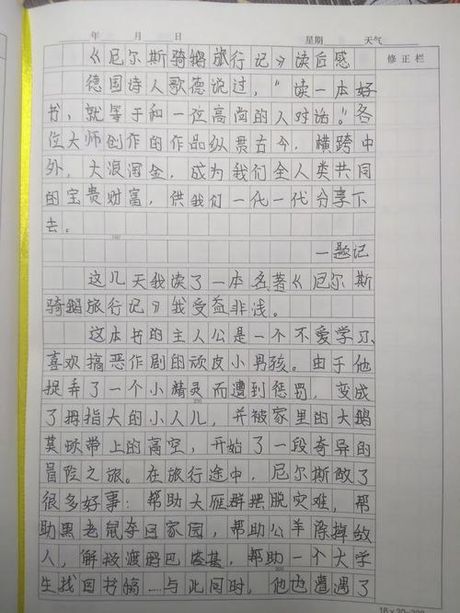 年 月 日 星期 天气
修正栏
《尼尔斯骑鹅旅行记》读后感
德国诗人歌德说过，“读一本好
书，就等于和一位高尚的人对话。”各
位大师创作的作品纵贯古今，横跨中
外，大浪淘金，成为我们全人类共同
的宝贵财富，供我们一代一代分享下
去。
—题记
这几天我读了一本名著《尼尔斯
骑鹅旅行记》我受益非浅。
这本书的主人公是一个不爱学习、
喜欢搞恶作剧的顽皮小男孩。由于他
捉弄了一个小精灵而遭到惩罚，变成
了拇指大的小人儿，并被家里的大鹅
莫顿带上的高空，开始了一段奇异的
冒险之旅。在旅行途中，尼尔斯做了
很多好事：帮助大雁群摆脱灾难，帮
助黑老鼠夺回家园，帮助公羊除掉敌
人，解救渡鸦巴塔基，帮助一个大学
生找回书稿……与此同时，他也遭遇了